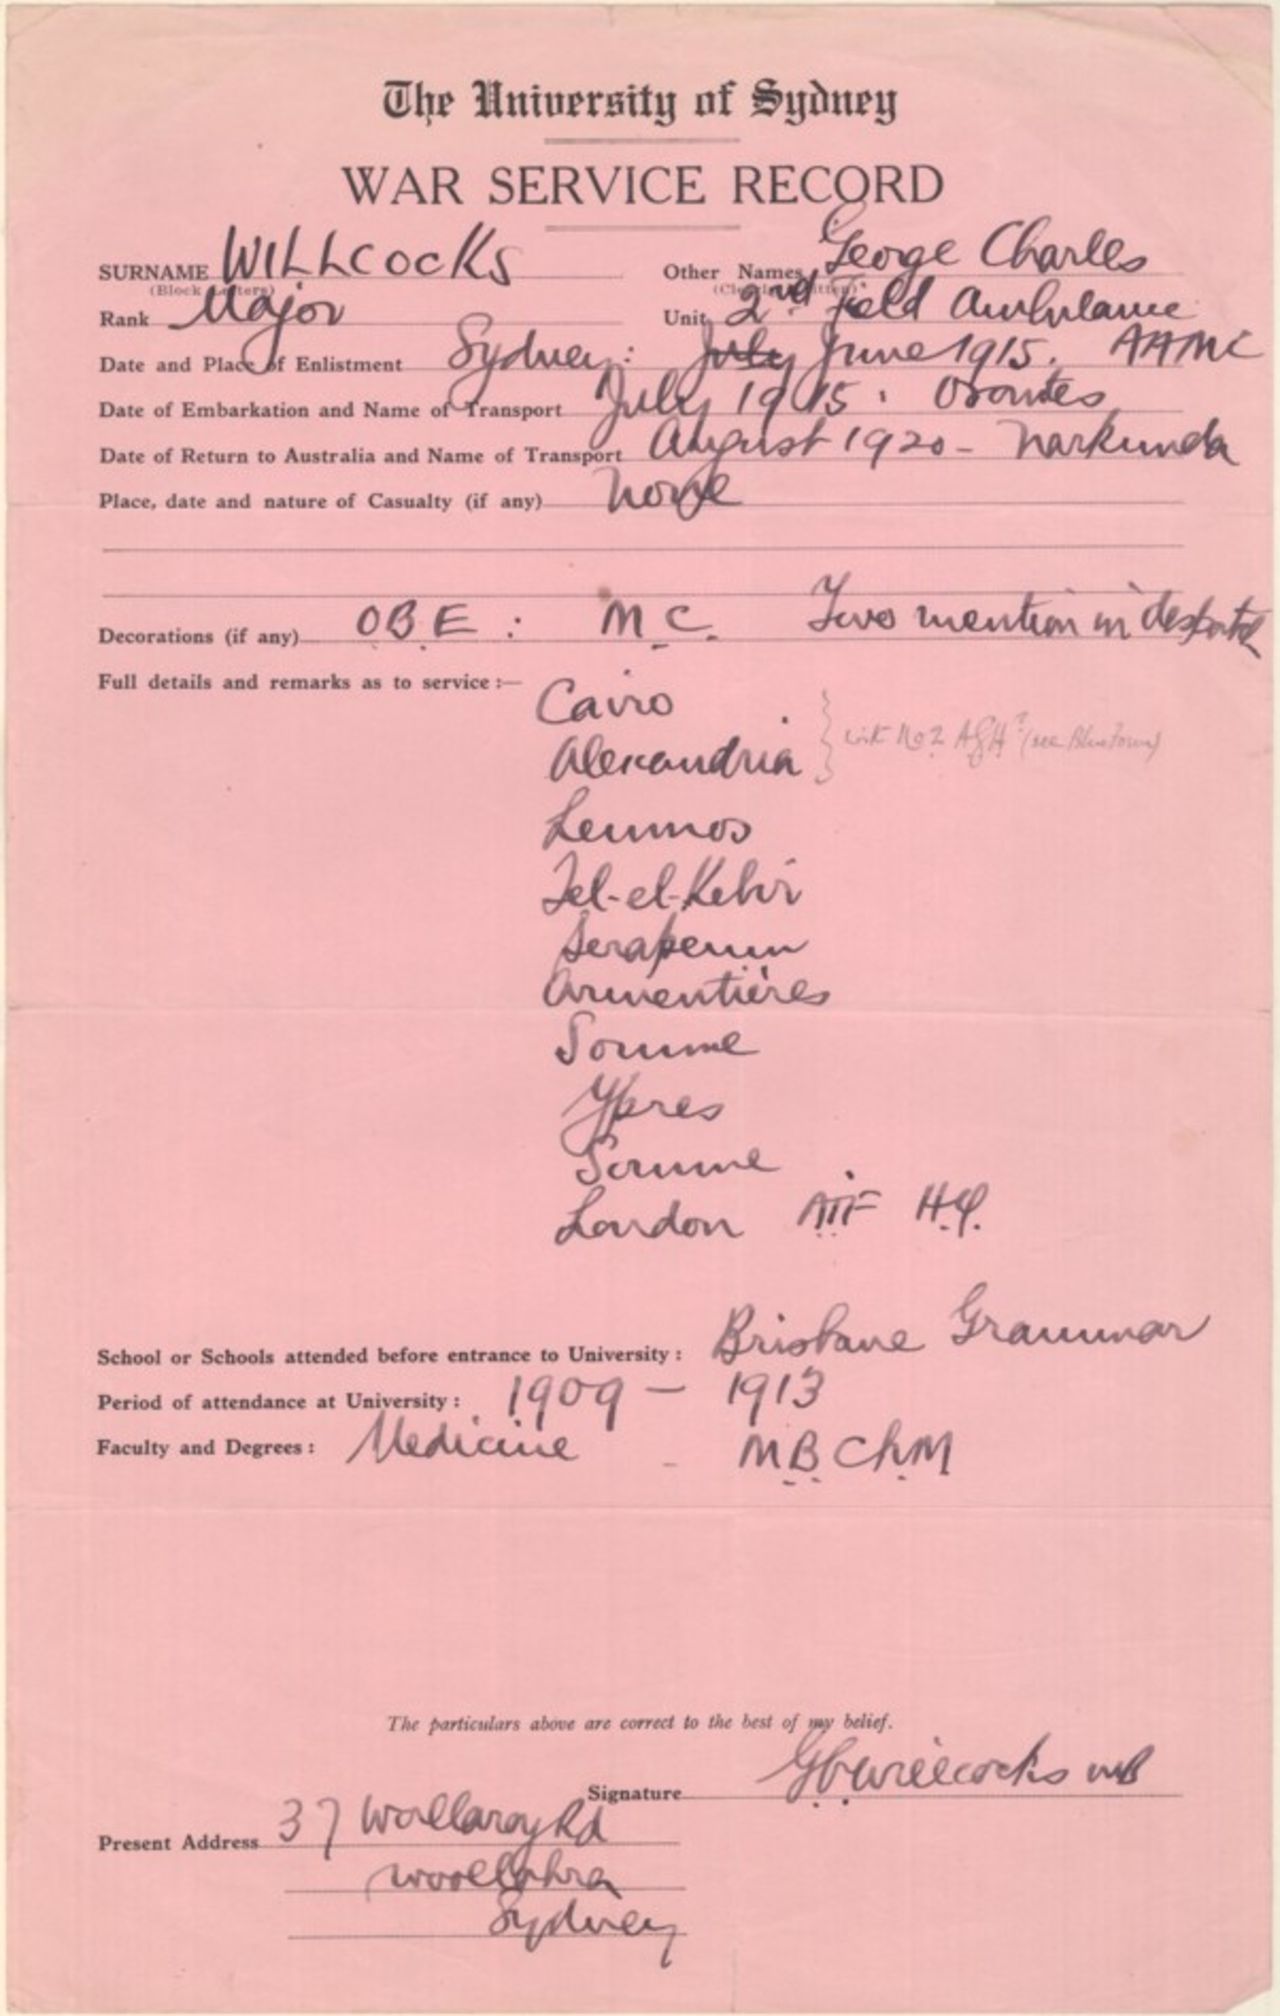 The University of Sydney
WAR SERVICE RECORD
SURNAME WILLCOCKS Other Names George Charles
(Block Letters) (Clearly Written)
Rank Major Unit 2nd Field Ambulance
Date and Place of Enlistment Sydney: July June 1915. AAMC
Date of Embarkation and Name of Transport July 1915. Orontes
Date of Return to Australia and Name of Transport August 1920 - Narkunda
Place, date and nature of Casualty (if any) None
Decorations (if any) O.B.E : M.C. Two mention in
Full details and remarks as to service :—
Cairo
Alexandria } with No 2 AGH? (see Blue Form)
Lemnos
Tel-el-Kebir
Serapeum
Armentières
Somme
Ypres
Somme
London AIF H.Q.
School or Schools attended before entrance to University : Brisbane Grammar
Period of attendance at University : 1909 - 1913
Faculty and Degrees : Medicine - M.B. Ch.M
The particulars above are correct to the best of my belief.
Signature G.C. Willcocks MB
Present Address 37 Wallaroy Rd
Woollahra
Sydney